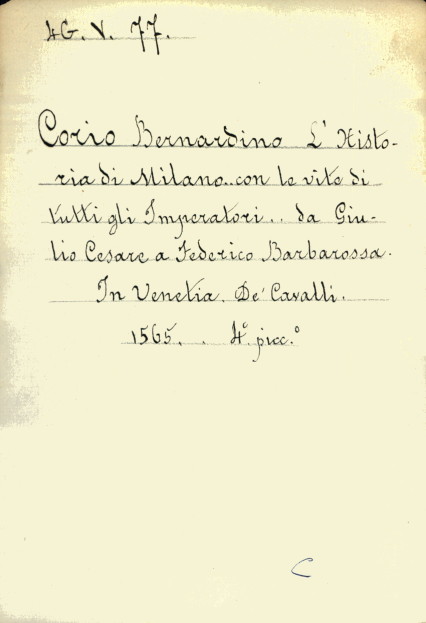 4G. V. 77.
Corio Bernardino L' Histo-
ria di Milano..con le vite di
tutti gli Imperatori.. da Giu-
lio Cesare a Federico Barbarossa.
In Venetia. De' Cavalli.
1565. . 4.º picc.º
C